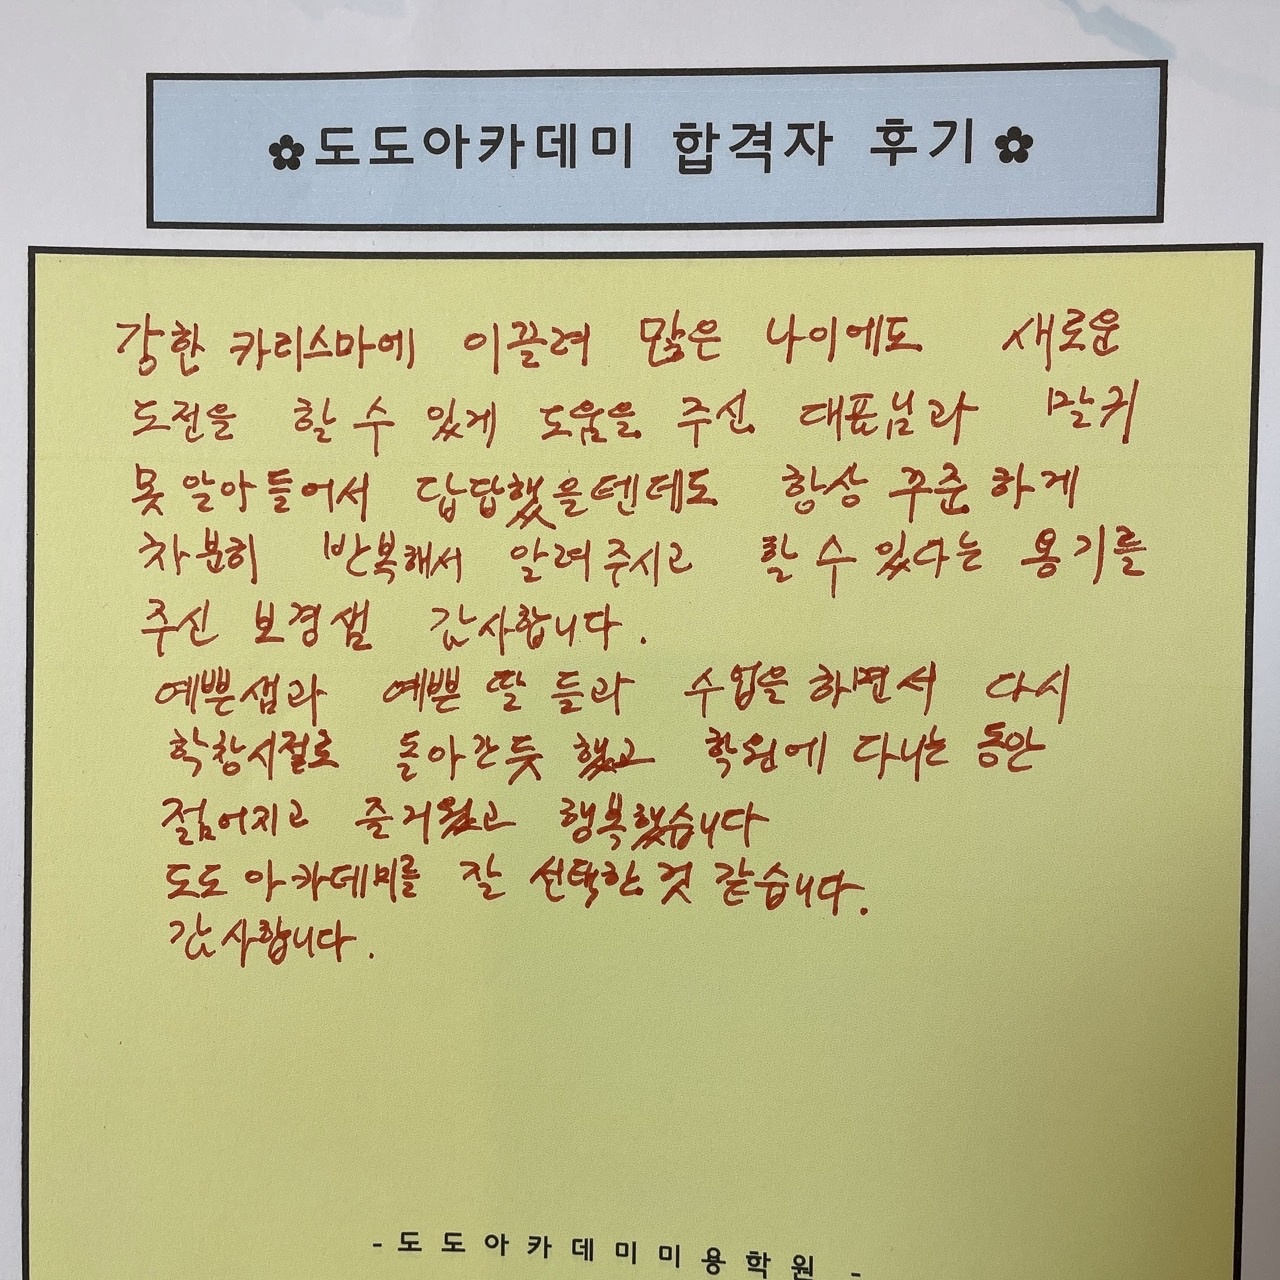 ✿도도아카데미 합격자 후기✿
강한 카리스마에 이끌려 많은 나이에도 새로운
도전을 할 수 있게 도움을 주신 대표님과 말귀
못 알아들어서 답답했을텐데도 항상 꾸준하게
차분히 반복해서 알려주시고 할 수 있다는 용기를
주신 보경샘 감사합니다.
예쁜샘과 예쁜 딸들과 수업을 하면서 다시
학창시절로 돌아간듯 했고 학원에 다니는 동안
젊어지고 즐거웠고 행복했습니다
도도아카데미를 잘 선택한것 같습니다.
감사합니다.
- 도도아카데미미용학원 -